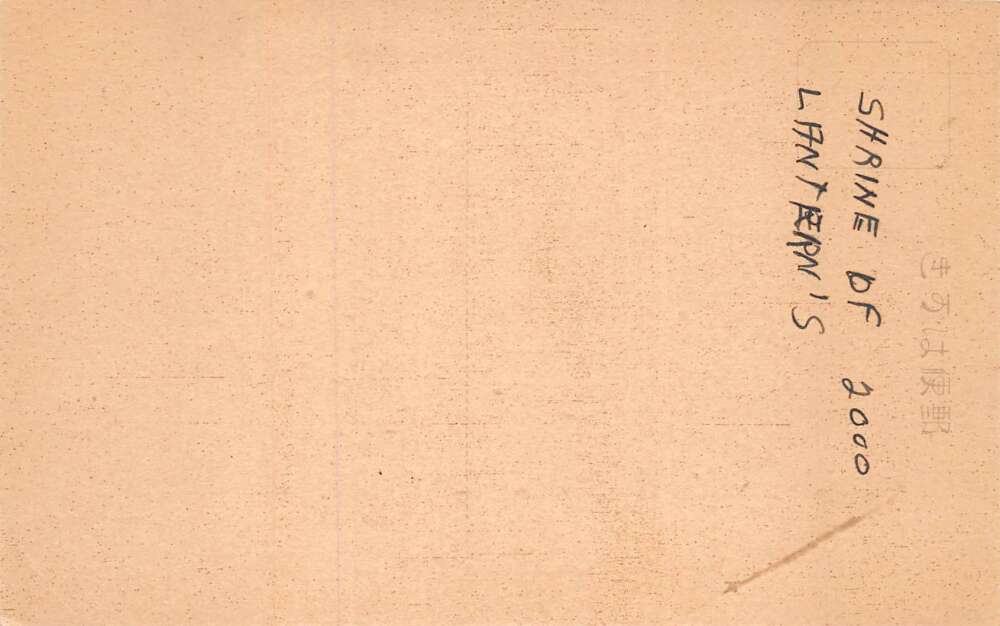 きかは便郵
SHRINE OF 2000
LANTERN'S